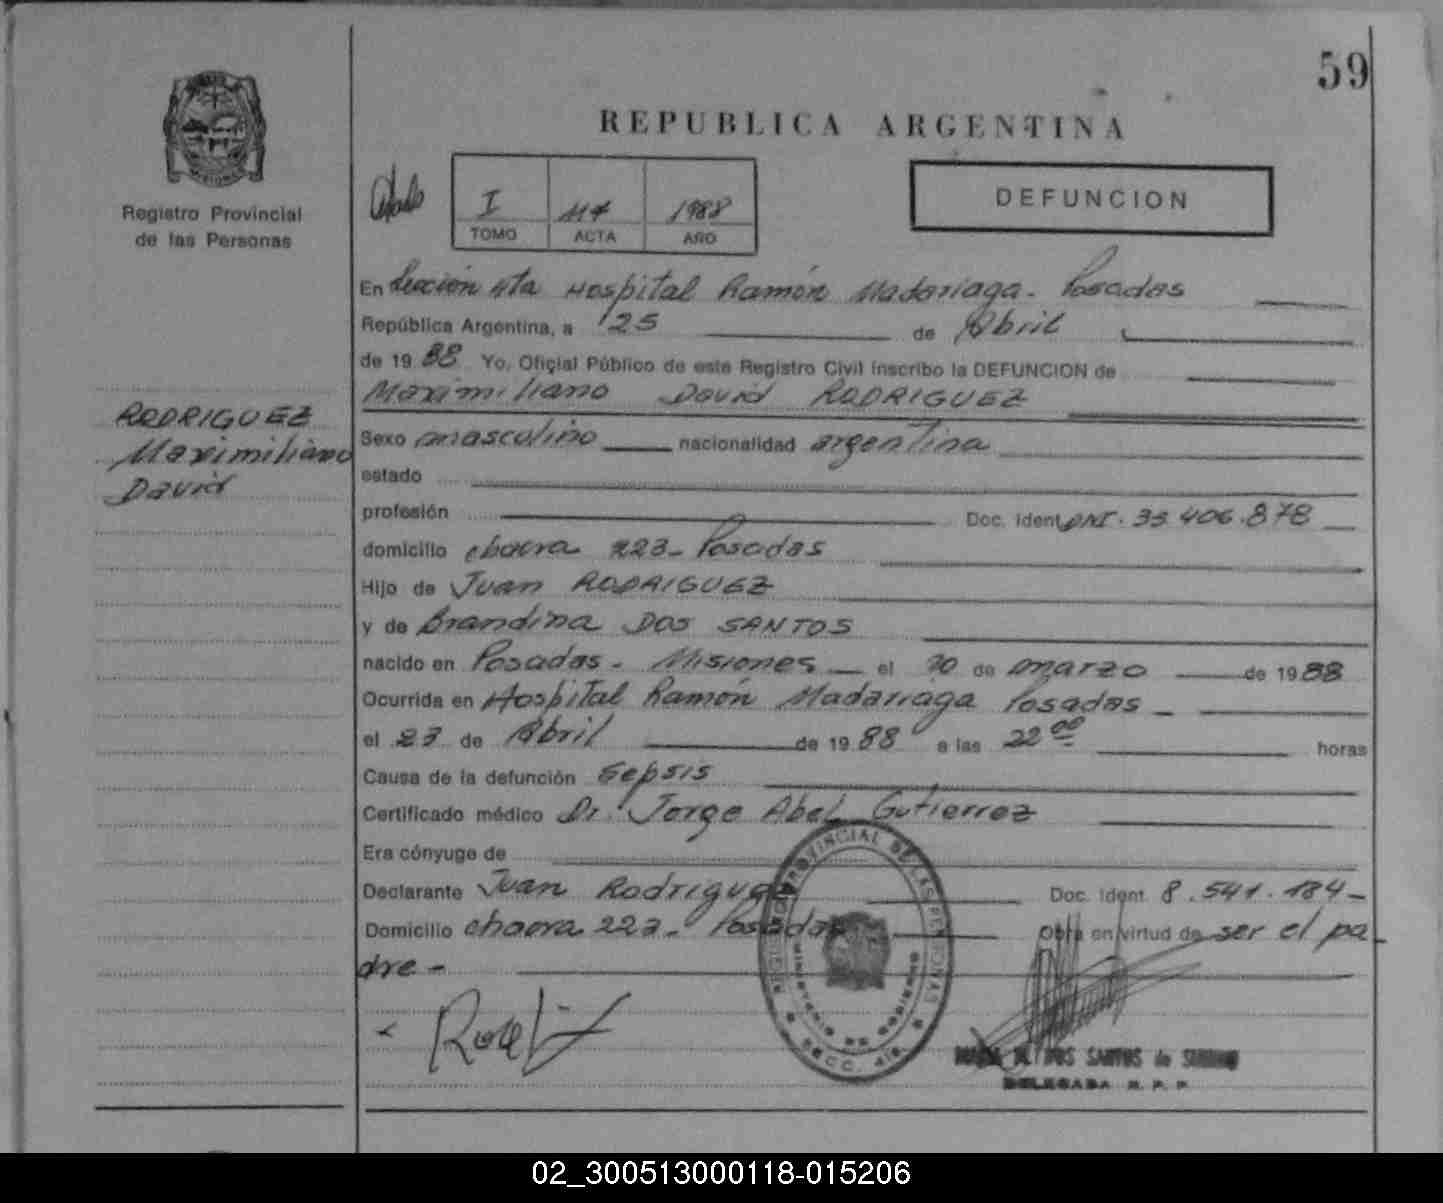 59
REPUBLICA ARGENTINA
Registro Provincial
de las Personas
I
117
1988
TOMO
ACTA
AÑO
DEFUNCION
En Sección 4ta Hospital Ramón Madariaga - Posadas
República Argentina, a 25 de Abril
de 19 88 Yo, Oficial Público de este Registro Civil inscribo la DEFUNCION de
Maximiliano David RODRIGUEZ
RODRIGUEZ
Maximiliano
David
Sexo masculino nacionalidad argentina
estado
profesión Doc. Ident. DNI. 33.406.878
domicilio chacra 223 - Posadas
Hijo de Juan RODRIGUEZ
y de Brandina DOS SANTOS
nacido en Posadas - Misiones el de marzo de 1988
Ocurrida en Hospital Ramón Madariaga Posadas
el 23 de Abril de 19 88 a las 22 00 horas
Causa de la defunción Sepsis
Certificado médico Dr. Jorge Abel Gutierrez
Era cónyuge de
Declarante Juan Rodriguez Doc. Ident. 8.541.184-
Domicilio chacra 223 - Posadas Obra en virtud de ser el pa-
dre -
REGISTRO PROVINCIAL DE LAS PERSONAS
MINISTERIO DE GOBIERNO
SECC. 4ta.
DOS SANTOS de
DELEGADA R. P. P.
02_300513000118-015206